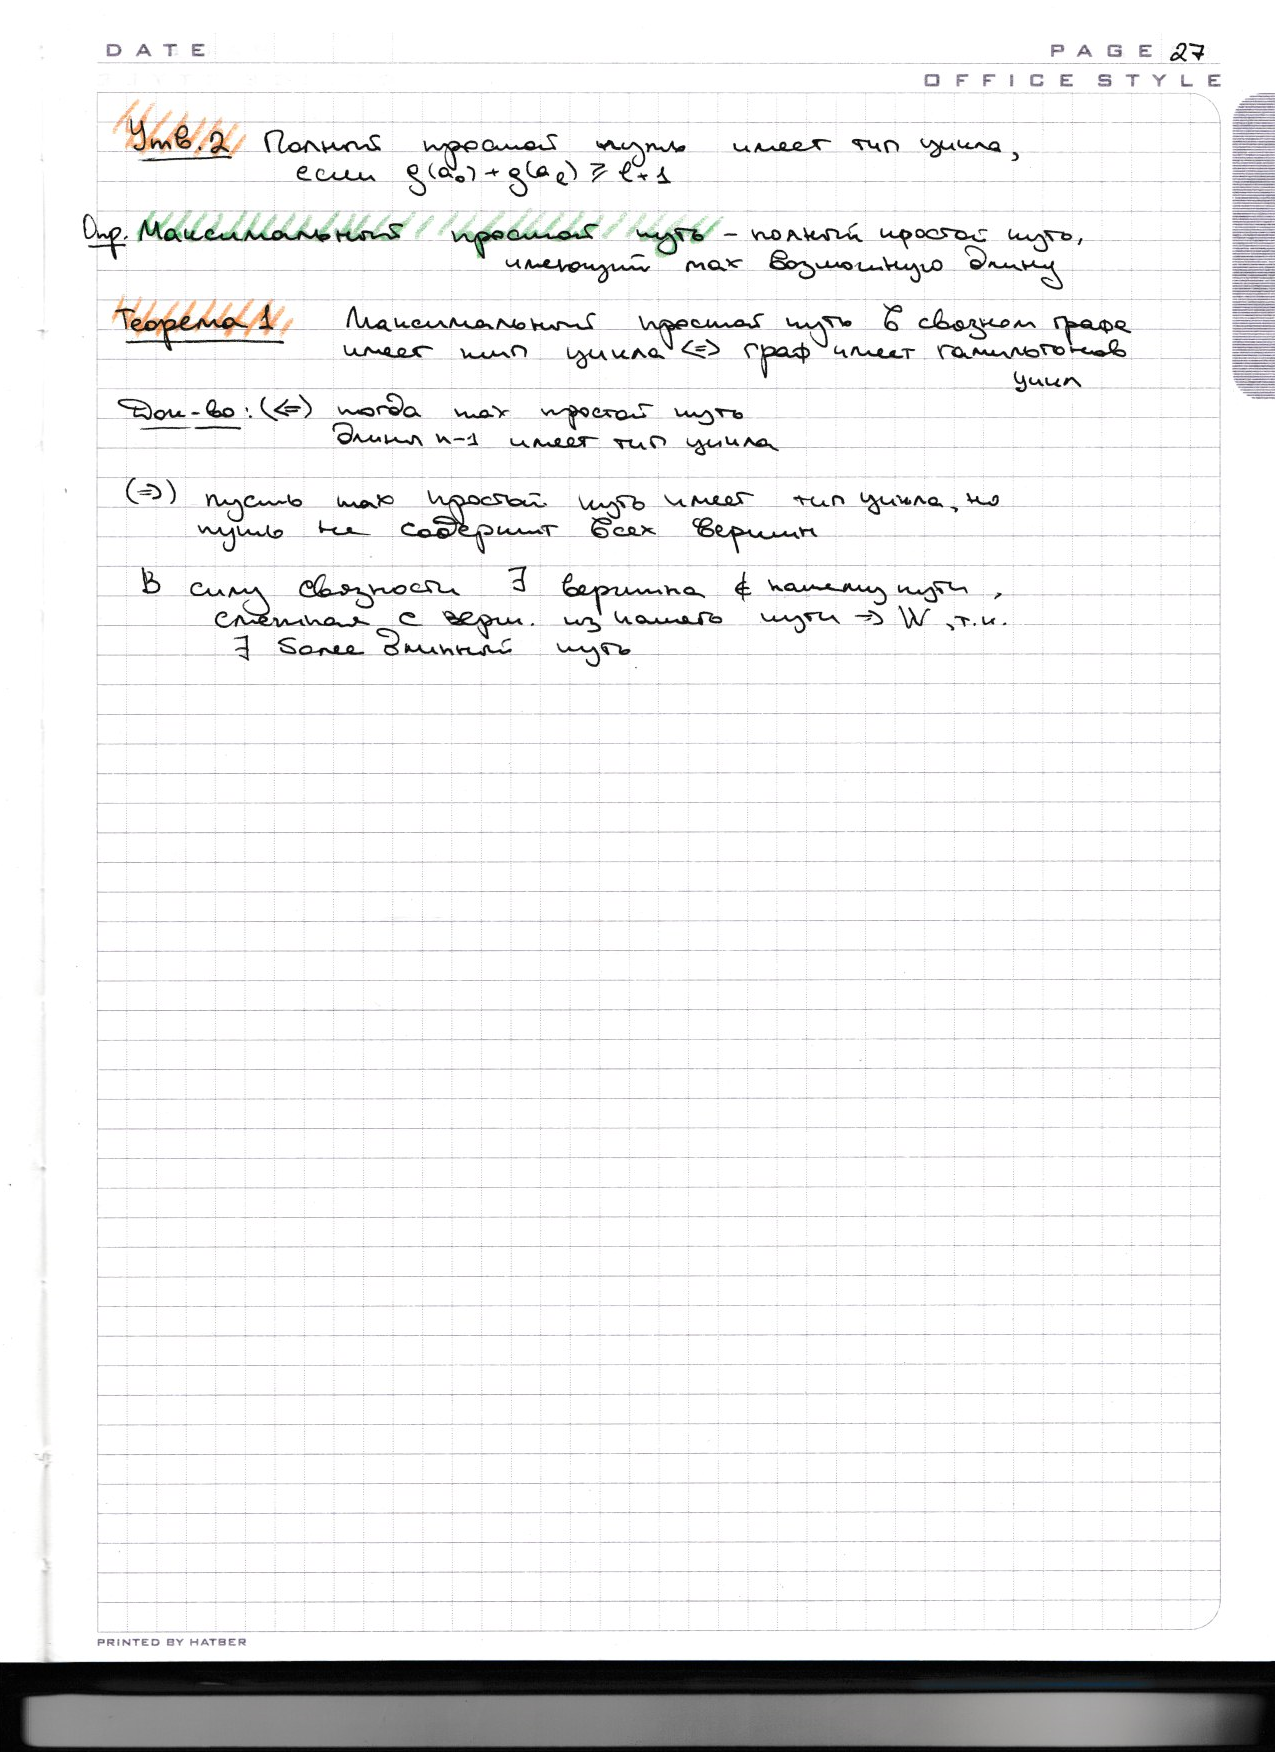 DATE
PAGE 27
OFFICE STYLE
Утв. 2 Полный простой путь имеет тип цикла,
если g(a₀) + g(aₑ) ⩾ l+1
Опр. Максимальный простой путь – полный простой путь,
имеющий max возможную длину
Теорема 1 Максимальный простой путь в связном графе
имеет тип цикла <=> граф имеет гамильтонов
цикл
Док-во: (<=) тогда max простой путь
длины n-1 имеет тип цикла
(=>) пусть max простой путь имеет тип цикла, но
путь не содержит всех вершин
В силу связности ∃ вершина ∉ нашему пути,
смежная с верш. из нашего пути => W, т.к.
∃ более длинный путь
PRINTED BY HATBER